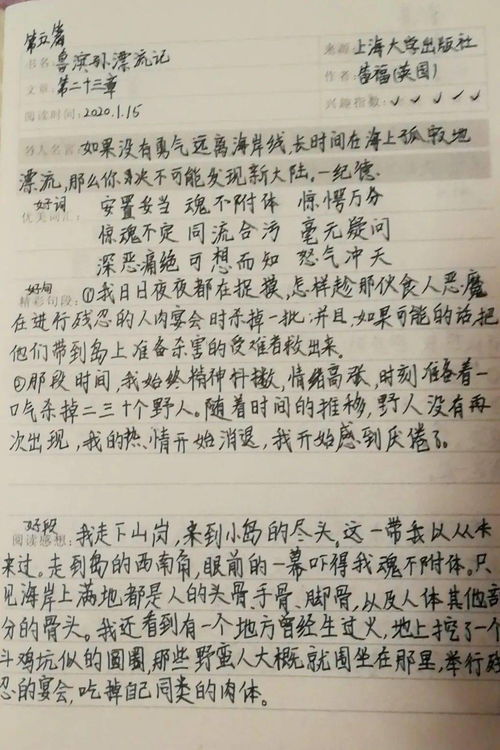 第五篇
书名: 鲁滨孙漂流记 来源 上海大学出版社
文章: 第二十三章 作者: 笛福(英国)
阅读时间: 2020.1.15 兴趣指数: ✓ ✓ ✓ ✓ ✓
名人名言 如果没有勇气远离海岸线,长时间在海上孤寂地
漂流,那么你决不可能发现新大陆。—纪德.
好词
优美词汇: 安置妥当 魂不附体 惊愕万分
惊魂不定 同流合污 毫无疑问
深恶痛绝 可想而知 怒气冲天
好句
精彩句段: ①我日日夜夜都在捉摸,怎样趁那伙食人恶魔
在进行残忍的人肉宴会时杀掉一批;并且,如果可能的话,把
他们带到岛上准备杀害的受难者救出来。
②那段时间,我始终精神抖擞,情绪高涨,时刻准备着一
口气杀掉二三十个野人。随着时间的推移,野人没有再
次出现,我的热情开始消退,我开始感到厌倦了。
好段
阅读感想: 我走下山岗,来到小岛的尽头。这一带我以从未
来过。走到岛的西南角,眼前的一幕吓得我魂不附体。只
见海岸上满地都是人的头骨、手骨、脚骨,以及人体其他部
分的骨头。我还看到有一个地方曾经生过火,地上挖了一个
斗鸡坑似的圆圈,那些野蛮人大概就围坐在那里,举行残
忍的宴会,吃掉自己同类的肉体。